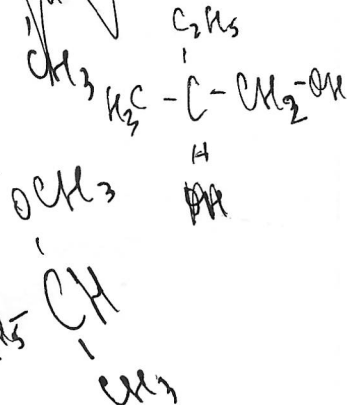 C₂H₅
CH₃
H₃C - C - CH₂-OH
H
OCH₃
H₅- CH
CH₃